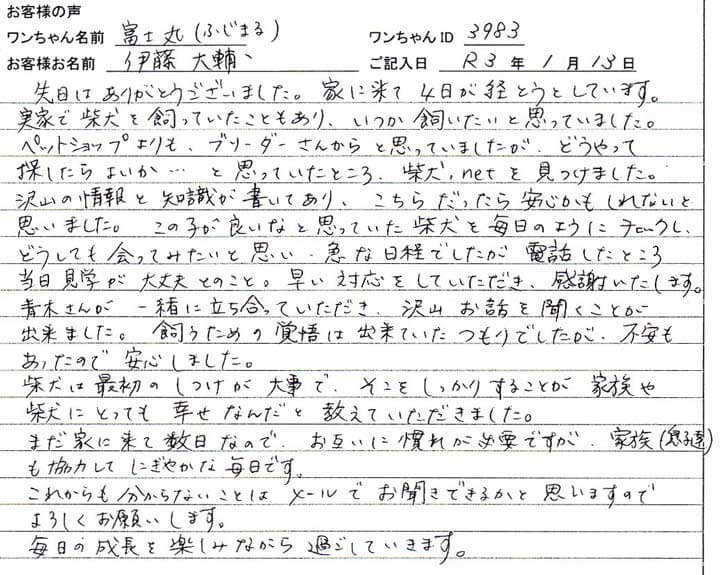 お客様の声
ワンちゃん名前 富士丸(ふじまる) ワンちゃんID 3983
お客様お名前 伊藤 大輔 ご記入日 R3 年 1 月 13 日
先日はありがとうございました。家に来て4日が経とうとしています。
実家で柴犬を飼っていたこともあり、いつか飼いたいと思っていました。
ペットショップよりも、ブリーダーさんからと思っていましたが、どうやって
探したらよいか… と思っていたところ、柴犬.netを見つけました。
沢山の情報と知識が書いてあり、こちらだったら安心かもしれないと
思いました。この子が良いなと思っていた柴犬を毎日のようにチェックし、
どうしても会ってみたいと思い、急な日程でしたが電話したところ
当日見学が大丈夫とのこと。早い対応をしていただき、感謝いたします。
青木さんが一緒に立ち合っていただき、沢山お話を聞くことが
出来ました。飼うための覚悟は出来ていたつもりでしたが、不安も
あったので安心しました。
柴犬は最初のしつけが大事で、そこをしっかりすることが家族や
柴犬にとっても幸せなんだと教えていただきました。
まだ家に来て数日なので、お互いに慣れが必要ですが、家族(息子達)
も協力してにぎやかな毎日です。
これからも分からないことはメールでお聞きできるかと思いますので
よろしくお願いします。
毎日の成長を楽しみながら過ごしていきます。